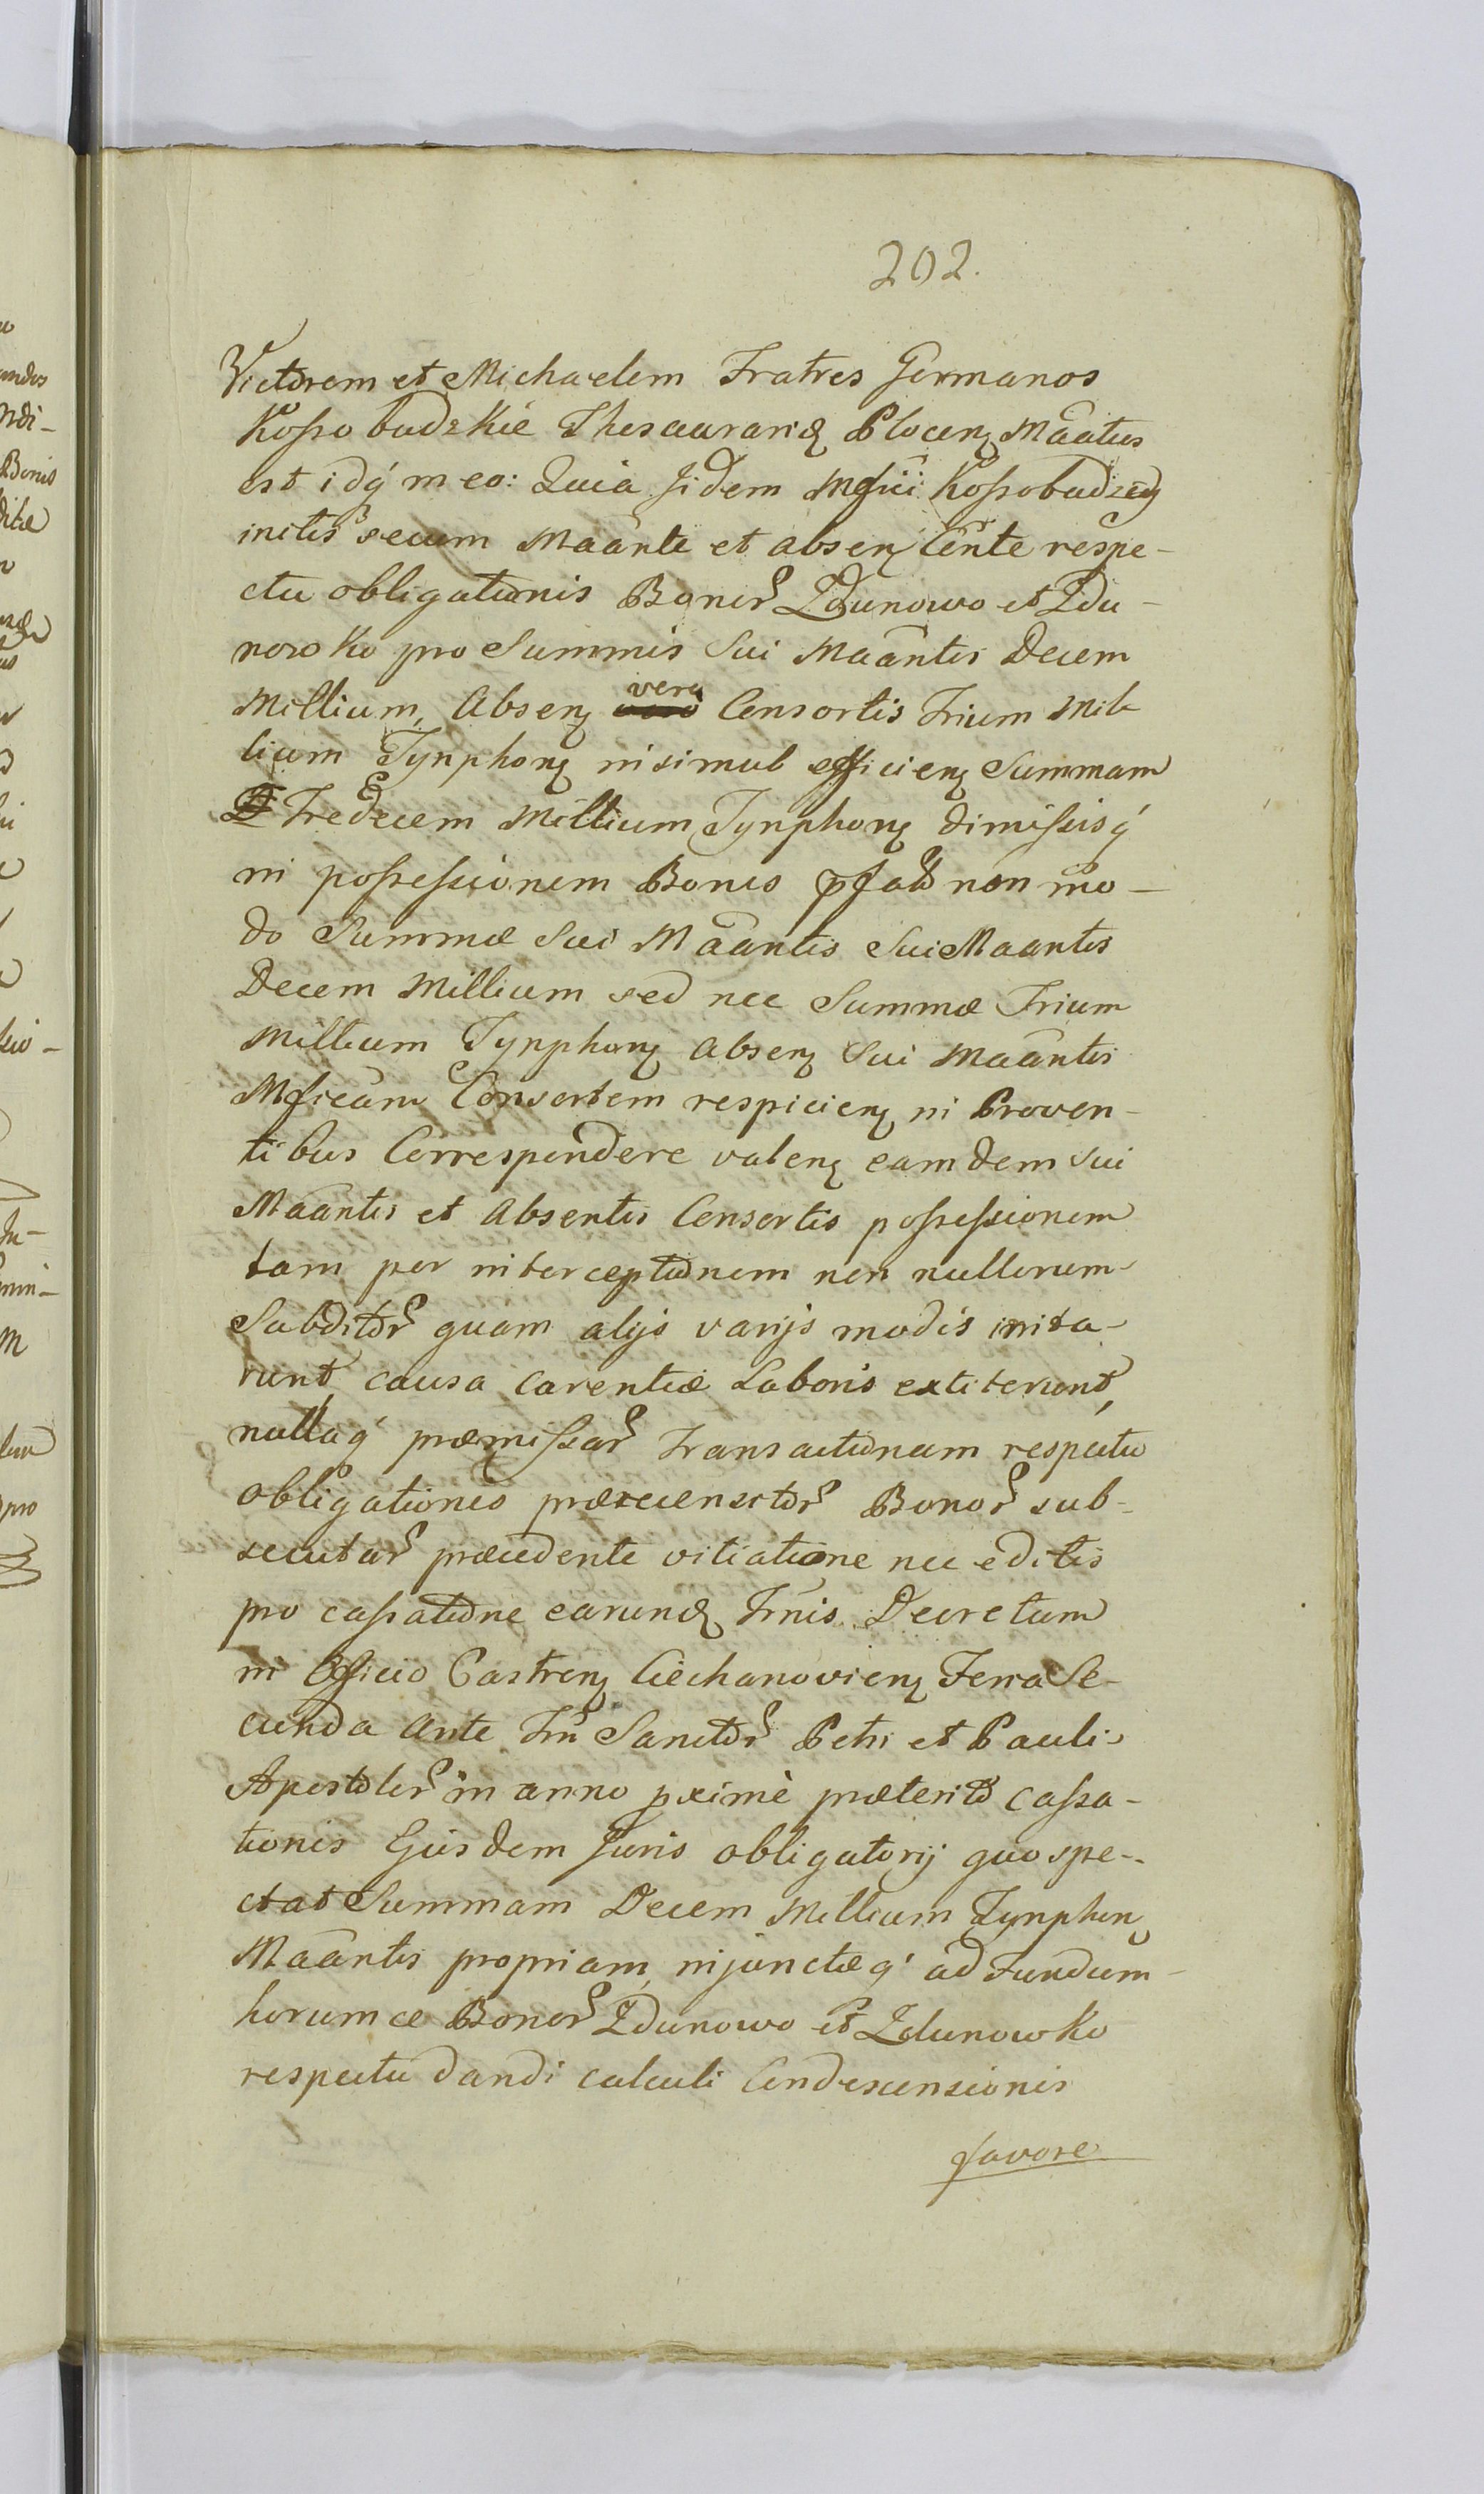 202.
Victorem et Michaelem Fratres Germanos
Kossobudzkie Thesaurarid Plocen Maatus
est idq́ m eo: Quia Jidem Mgfici Kossobudzcy
initis secum Maante et absen Cónte respe-
ctu obligationis Bonor Zdunowo et Zdu-
nowko pro Summis Sui Maantis Decem
Millium, Absen vero Consortis Trium Mil-
lium Tynphon insimul efficien Summam
Tredecem Millium Tynphon dimissisq́
in possessionem Bonis pfato non mo-
do Summæ Sui Maantis Sui Maantis
Decem Millium sed nec Summæ Trium
Millium Tynphon absen Sui Maantis
Mficam Consortem respicien in Proven-
tibus Correspondere valen eamdem Sui
Maantis et Absentis Consortis possessionem
tam per interceptionem non nullorum
Subditor quam alijs varijs modis irrita-
runt, causa carentiæ Laboris extiterunt,
nullaq́ præmissar transactionum respectu
obligationis præcensitor Bonor sub-
secutar præcedente vitiatione nec editis
pro cassatione earund Trnis Decretum
in Officio Castren Ciechanovien Feria Se-
cunda ante Ftu Sanctor Petri et Pauli
Apostolor in anno pximè præterito cassa-
tionis Ejusdem Juris obligatorij quo spe-
ctat Summam Decem Millium Tynphon
Maantis propriam, injunctæq́ ad Fundum
horumce Bonor Zdunowo et Zdunowko
respectu dandi calculi Condescensionis
favore